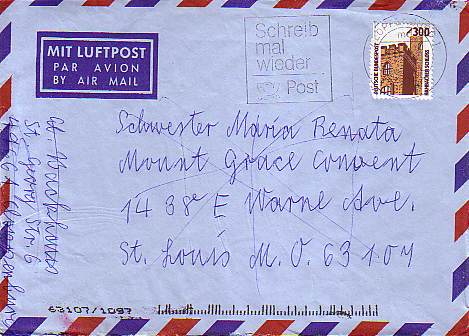 MIT LUFTPOST
PAR AVION
BY AIR MAIL
Schreib
mal
wieder
Post
300
DEUTSCHE BUNDESPOST
Schwester Maria Renata
Mount Grace Convent
1438 E Warne Ave.
St. Louis M.O. 63107
St. Georg Str. 6
63107/1097